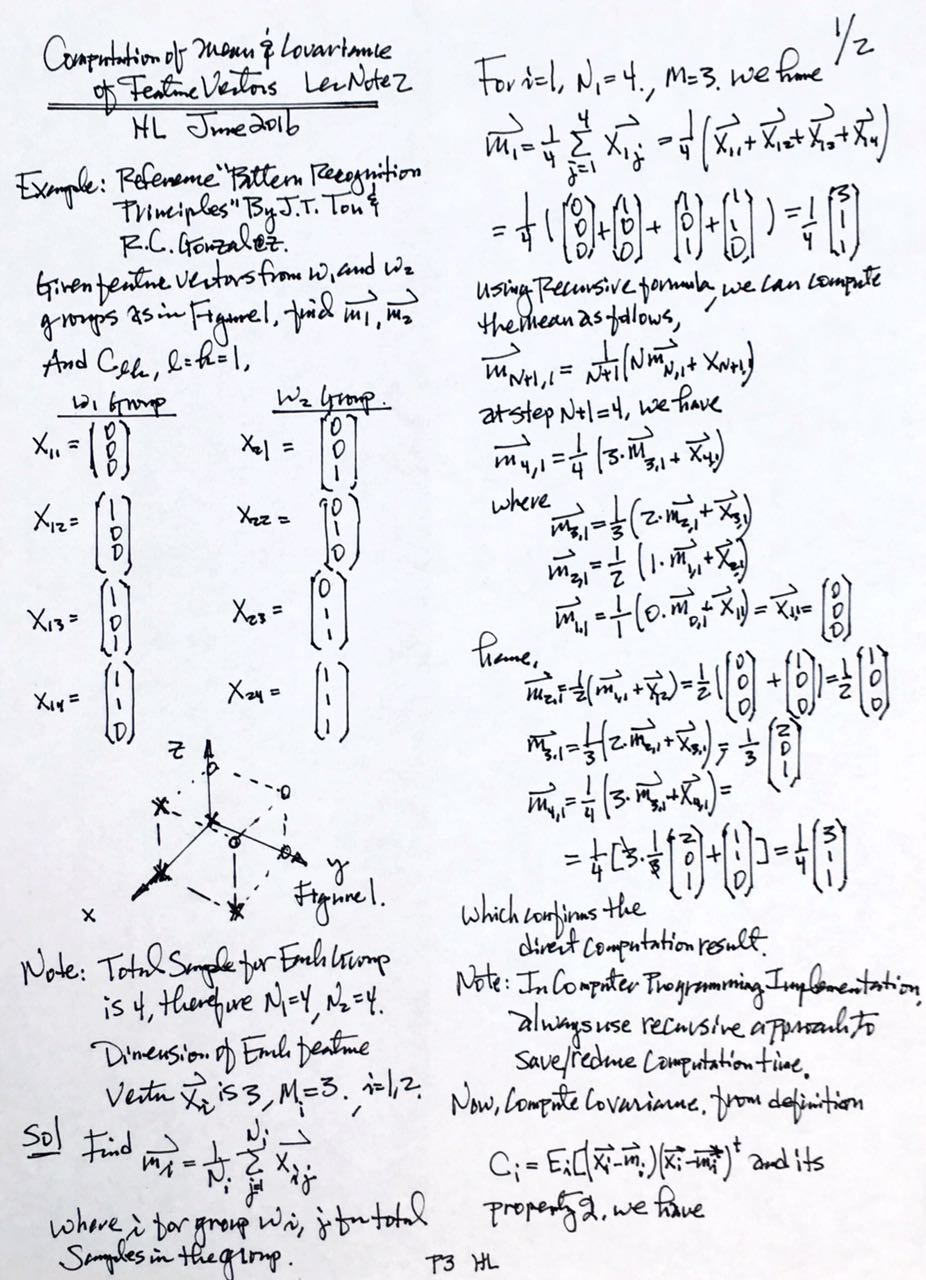 Computation of Mean & Covariance
of Feature Vectors Lec Note 2
HL June 2016
Example: Reference "Pattern Recognition
Principles" By J.T. Tou &
R.C. Gonzalez.
Given feature vectors from w1 and w2
groups as in Figure 1, find m⃗1, m⃗2
And Clk, l=k=1,
w1 Group w2 Group
X11 = (0 0 0) X21 = (0 0 1)
X12 = (1 0 0) X22 = (0 1 0)
X13 = (1 0 1) X23 = (0 1 1)
X14 = (1 1 0) X24 = (1 1 1)
z
y
x
Figure 1.
Note: Total Sample for Each Group
is 4, therefore N1=4, N2=4.
Dimension of Each feature
Vector X⃗i is 3, Mi=3. i=1,2.
Sol Find m⃗i = 1/Ni Σ_{j=1}^{Ni} X⃗ij
where i for group wi, j for total
Samples in the group.
1/2
For i=1, N1=4., M=3. we have
m⃗1 = 1/4 Σ_{j=1}^{4} X1j = 1/4 (X⃗11 + X⃗12 + X⃗13 + X⃗14)
= 1/4 ( (0 0 0) + (1 0 0) + (1 0 1) + (1 1 0) ) = 1/4 (3 1 1)
using Recursive formula, we can compute
the mean as follows,
m⃗N+1,1 = 1/N+1 (N m⃗N,1 + XN+1,1)
at step N+1=4, we have
m⃗4,1 = 1/4 (3·m⃗3,1 + X⃗4,1)
where
m⃗3,1 = 1/3 (2·m⃗2,1 + X⃗3,1)
m⃗2,1 = 1/2 (1·m⃗1,1 + X⃗2,1)
m⃗1,1 = 1/1 (0·m⃗0,1 + X⃗1,1) = X⃗1,1 = (0 0 0)
hence,
m⃗2,1 = 1/2 (m⃗1,1 + X⃗1,2) = 1/2 ( (0 0 0) + (1 0 0) ) = 1/2 (1 0 0)
m⃗3,1 = 1/3 (2·m⃗2,1 + X⃗3,1) = 1/3 (2 0 1)
m⃗4,1 = 1/4 (3·m⃗3,1 + X⃗4,1) =
= 1/4 [3·1/3 (2 0 1) + (1 1 0)] = 1/4 (3 1 1)
which confirms the
direct computation result.
Note: In Computer Programming Implementation,
always use recursive approach, to
save/reduce Computation time.
Now, Compute Covariance. from definition
Ci = Ei[(X⃗i-m⃗i)(X⃗i-m⃗i)^t and its
property 2, we have
P3 HL